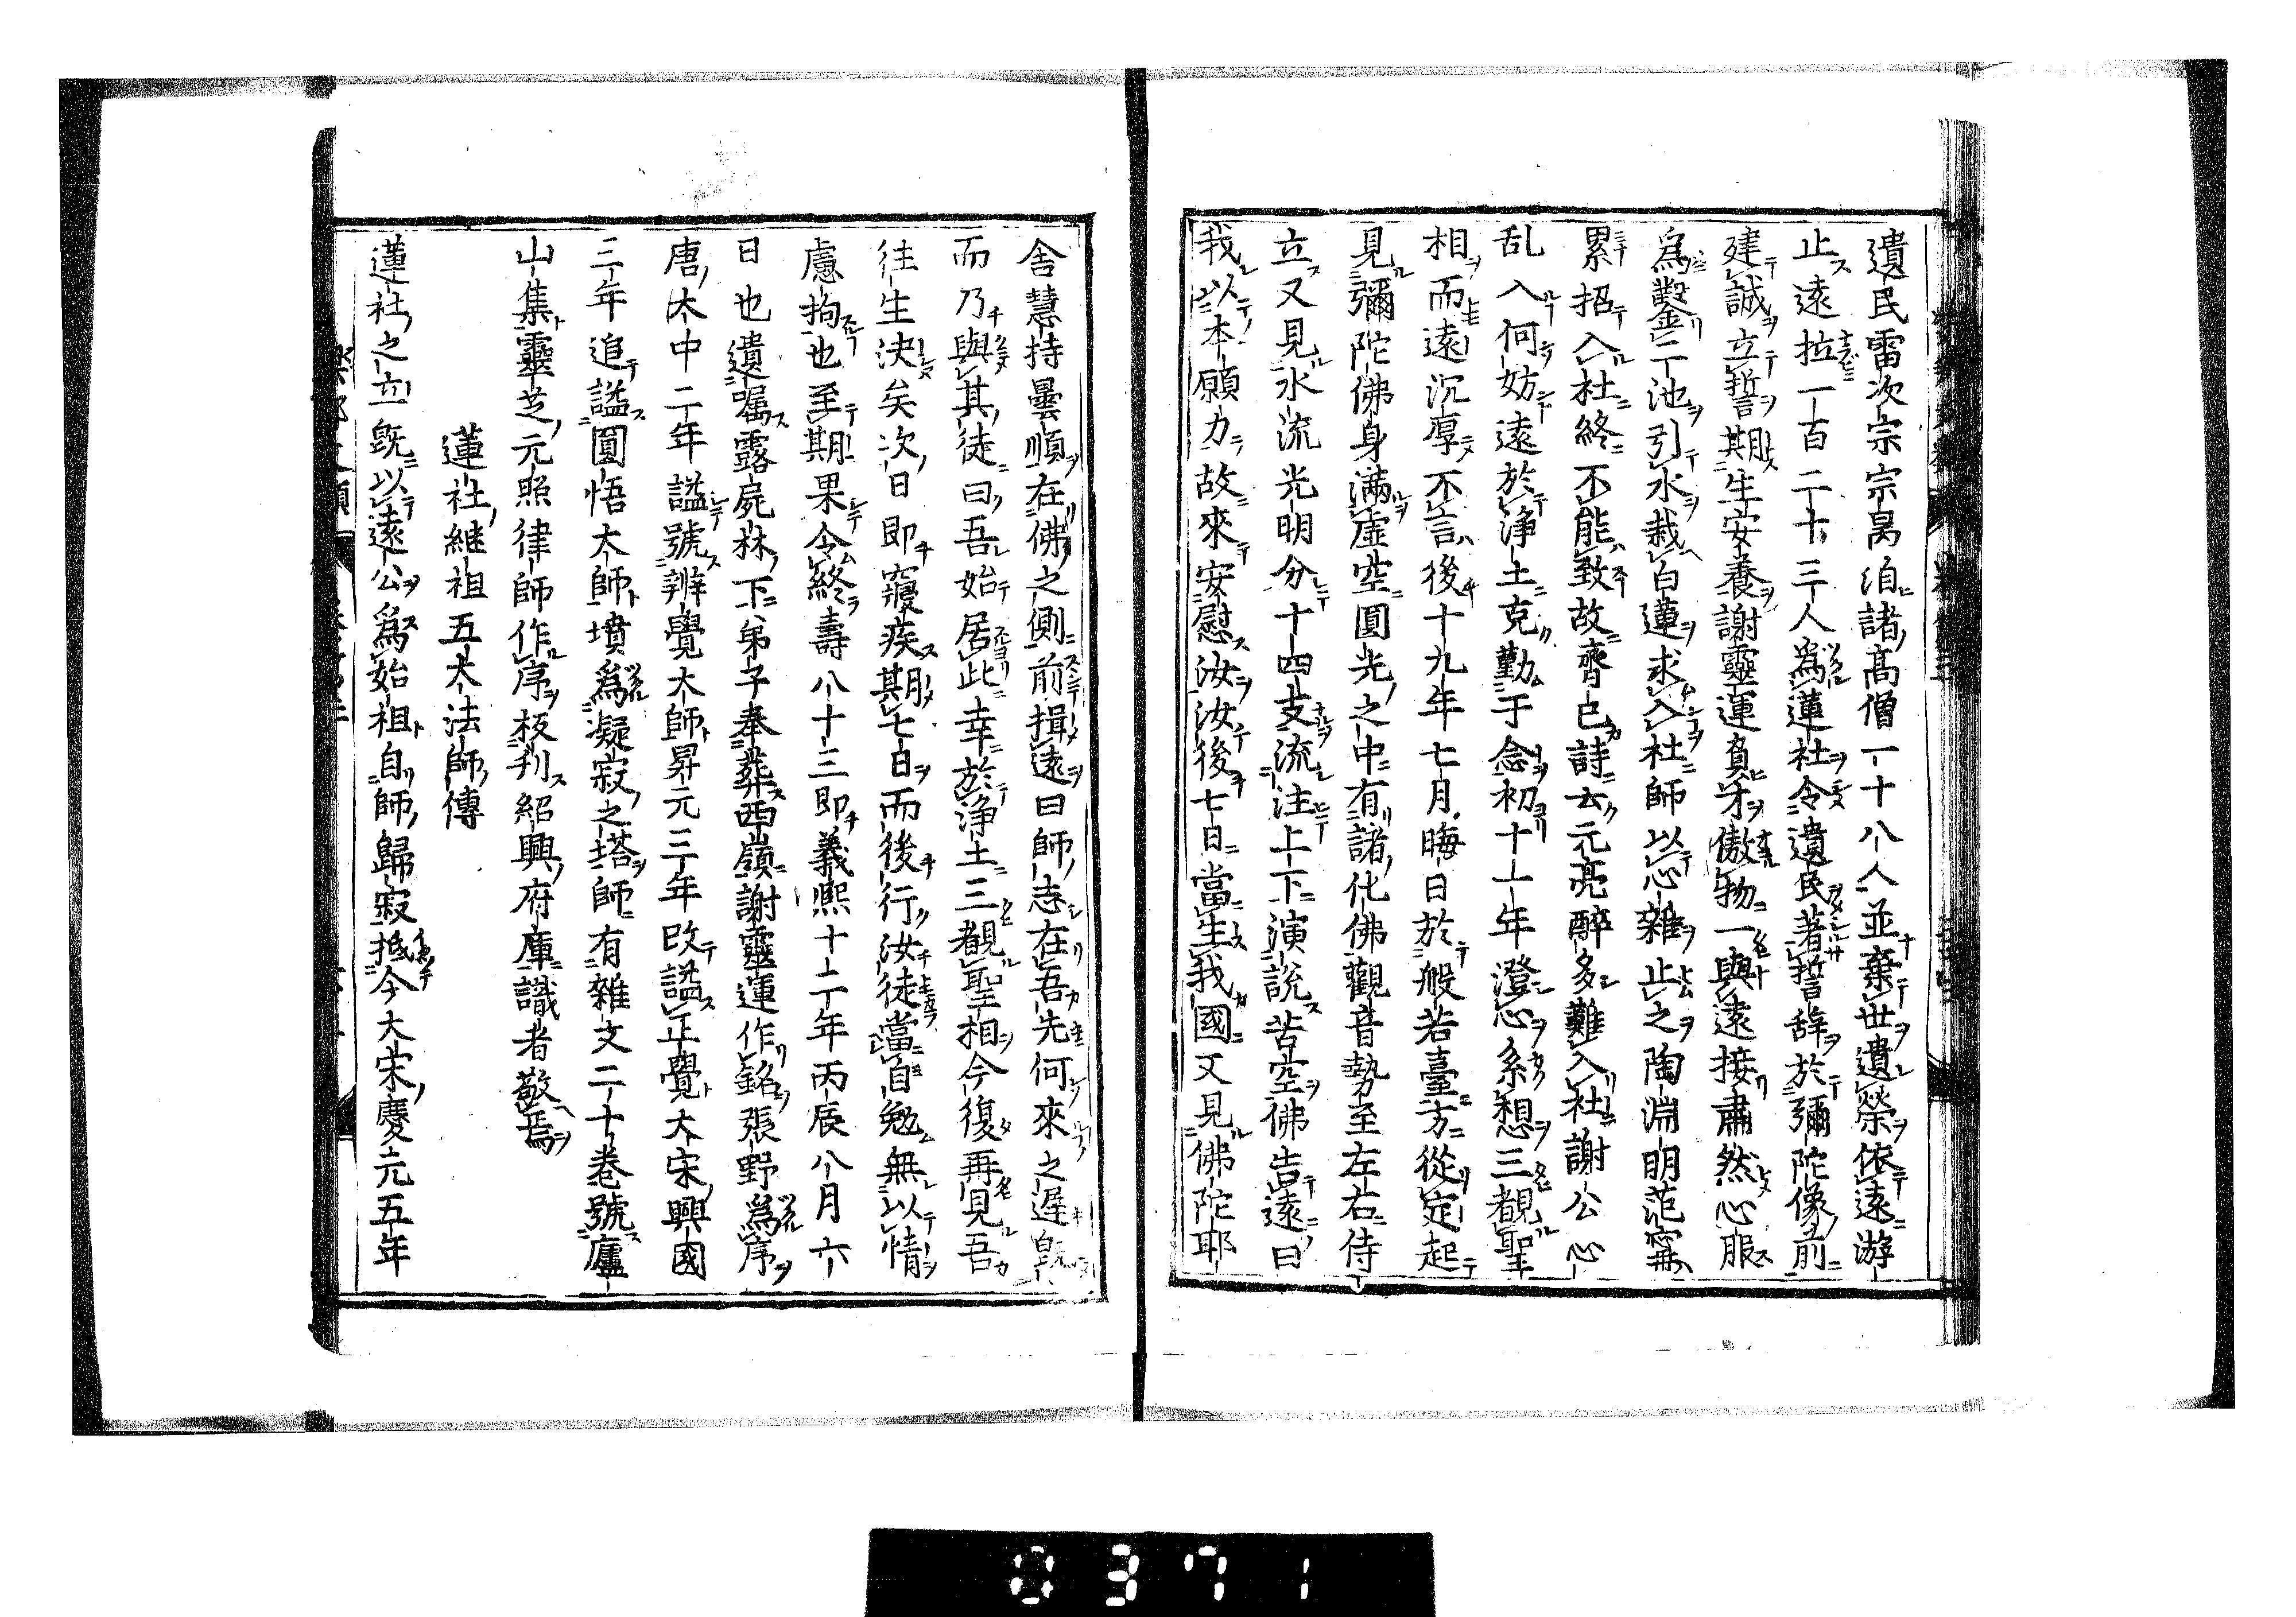 遺民雷次宗宗炳洎諸高僧一十八人並棄世遺榮依遠游
止遠拉一百二十三人爲蓮社令遺民著誓辞於彌陀像前
建誠立誓期生安養謝靈運負才傲物一與遠接肅然心服
爲鑿二池引水栽白蓮求入社師以心雜止之陶淵明范寗
累招入社終不能致故齊己詩云元亮醉多難入社謝公心
乱入何妨遠於淨土克勤于念初十一年澄心系想三覩聖
相而遠沉厚不言後十九年七月晦日於般若臺方從定起
見彌陀佛身滿虛空圓光之中有諸化佛觀音勢至左右侍
立又見水流光明分十四支流注上下演說苦空佛告遠曰
我以本願力故來安慰汝汝後七日當生我國又見佛陀耶
舍慧持曇順在佛之側前揖遠曰師志在吾先何來之遲旣
而乃與其徒曰吾始居此幸於淨土三覩聖相今復再見吾
往生決矣次日即寢疾期七日而後行汝徒當自勉無以情
慮拘也至期果令終壽八十三即義熙十二年丙辰八月六
日也遺囑露屍林下弟子奉葬西嶺謝靈運作銘張野爲序
唐大中二年謚號辨覺大師昇元三年改謚正覺大宋興國
三年追謚圓悟大師墳爲凝寂之塔師有雜文二十卷號廬
山集靈芝元照律師作序板刊紹興府庫識者敬焉
蓮社継祖五大法師傳
蓮社之立旣以遠公爲始祖自師歸寂抵今大宋慶元五年
0371